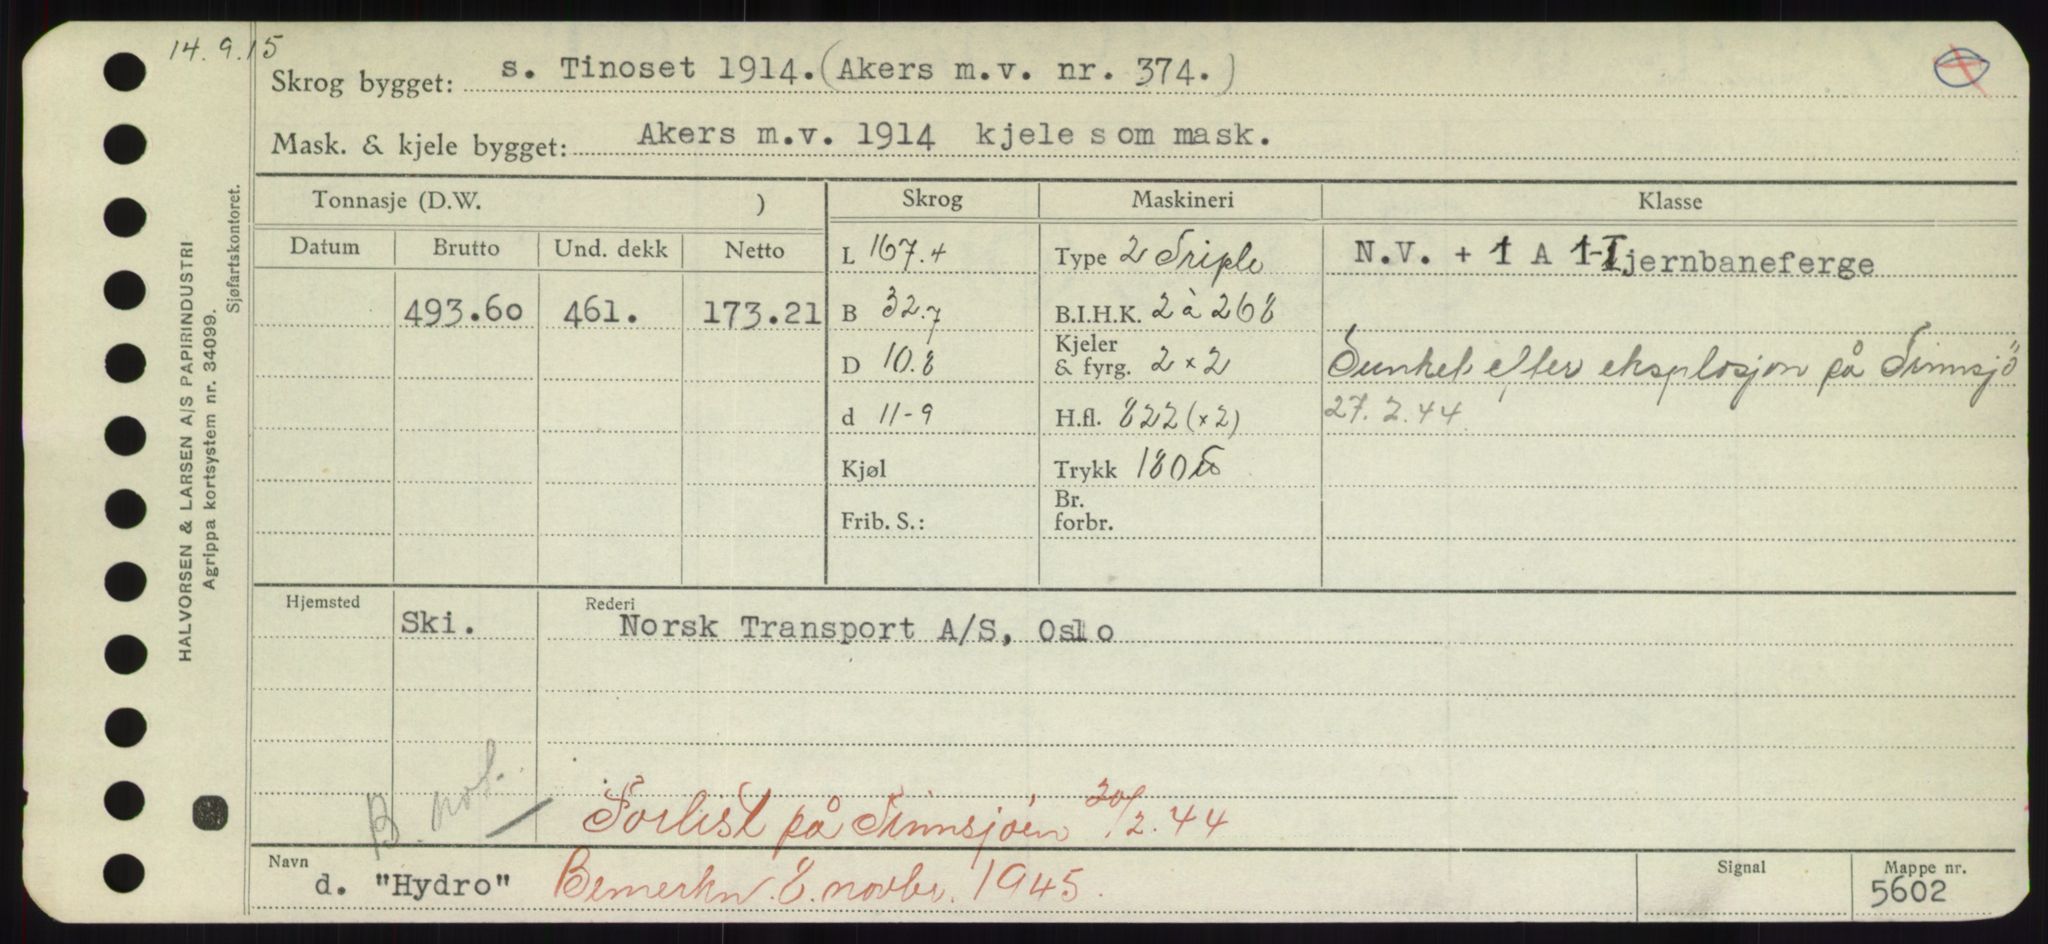 14.9.15
Skrog bygget: s. Tinoset 1914. (Akers m.v. nr. 374.)
Mask. & kjele bygget: Akers m.v. 1914 kjele som mask.
Tonnasje (D.W. )
Skrog
Maskineri
Klasse
Datum
Brutto
Und. dekk
Netto
493.60 461. 173.21
L 167.4
B 32.7
D 10.8
d 11-9
Kjøl
Frib. S.:
Type 2 Triple
B.I.H.K. 2 à 268
Kjeler
& fyrg. 2 x 2
H.fl. 822 (x2)
Trykk 180
Br.
forbr.
N.V. + 1 A 1-I jernbaneferge
Sunket efter eksplosjon på Tinnsjö
27.2.44
Hjemsted
Ski.
Rederi
Norsk Transport A/S, Oslo
B. not.
Forlist på Tinnsjöen 20/2.44
Navn
d. "Hydro" Bemerkn. 8. novbr. 1945.
Signal
Mappe nr.
5602
HALVORSEN & LARSEN A/S PAPIRINDUSTRI
Agrippa kortsystem nr. 34099.
Sjøfartskontoret.